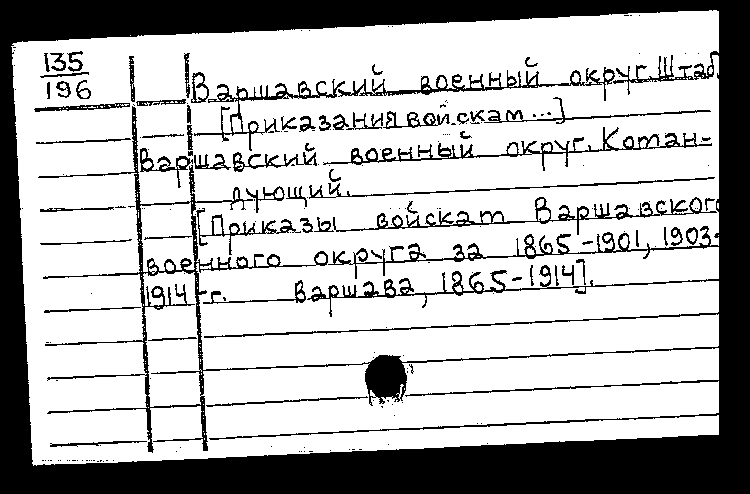 135
196
Варшавский военный округ. Штаб.
[Приказания войскам...]
Варшавский военный округ. Коман-
дующий.
[Приказы войскам Варшавского
военного округа за 1865-1901, 1903-
1914 гг. Варшава, 1865-1914].